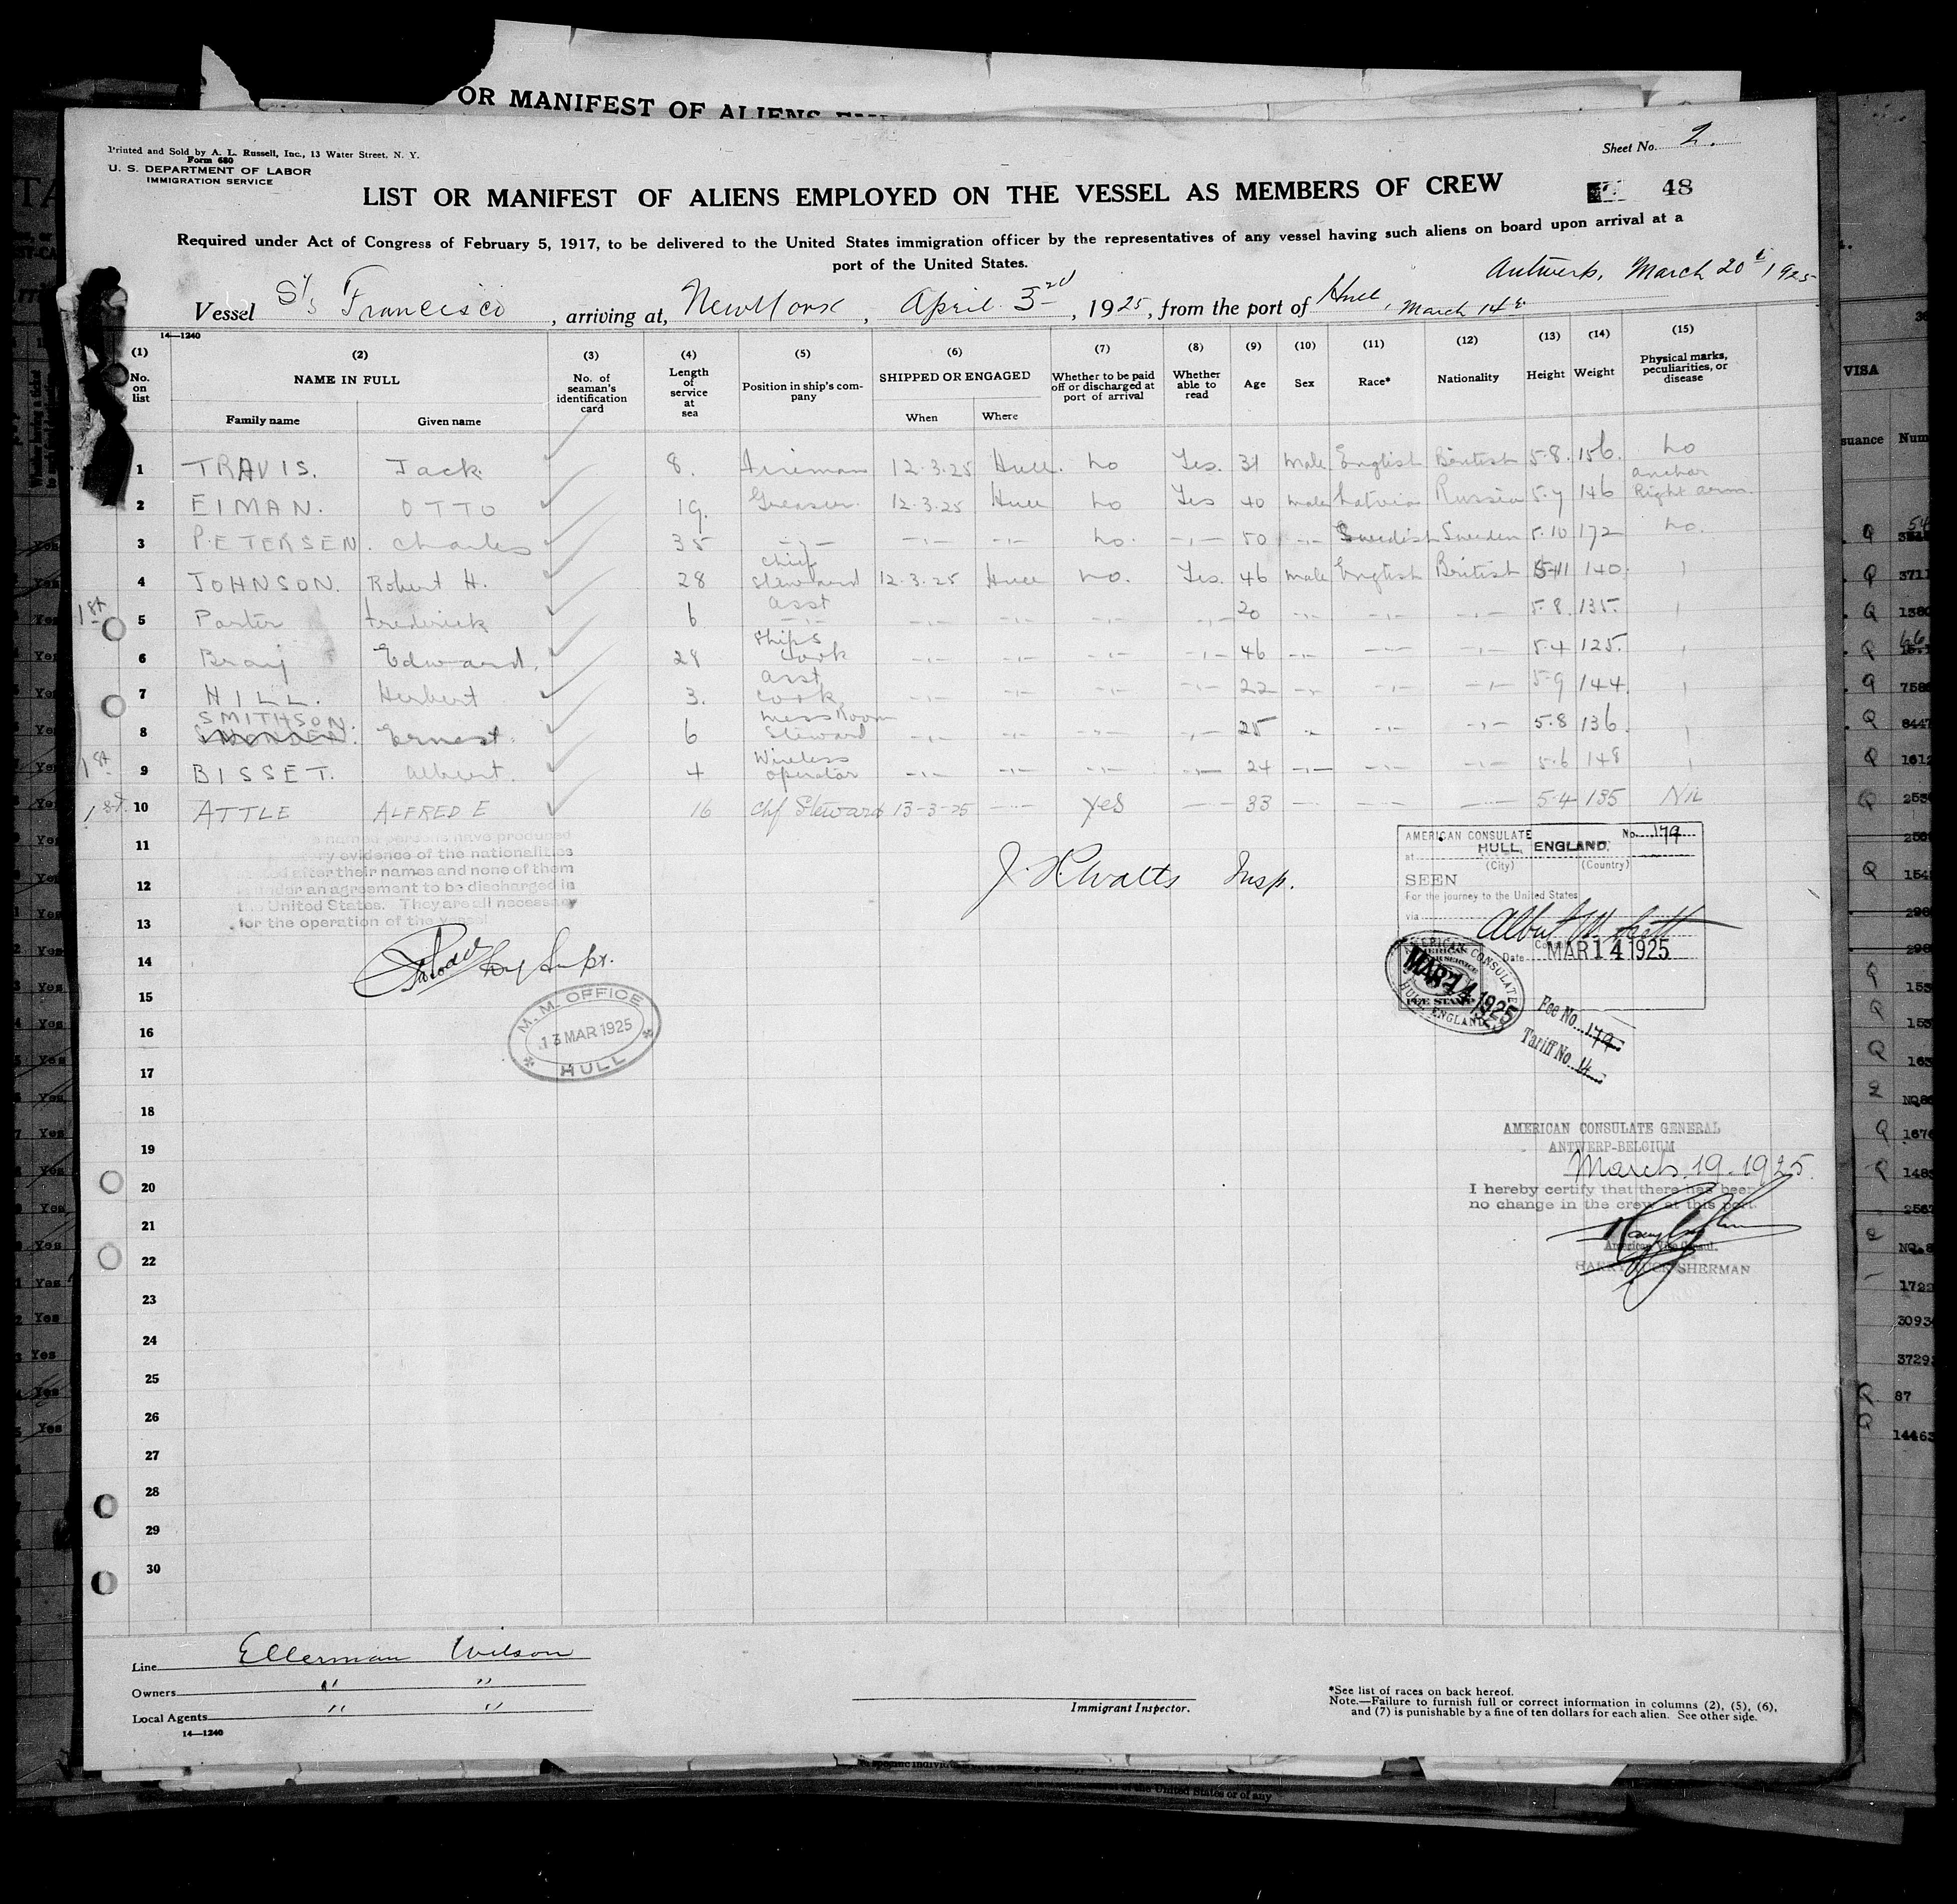 OR MANIFEST OF ALIENS
Printed and Sold by A. L. Russell, Inc., 13 Water Street, N. Y.
Form 680
U. S. DEPARTMENT OF LABOR
IMMIGRATION SERVICE
Sheet No. 2.
LIST OR MANIFEST OF ALIENS EMPLOYED ON THE VESSEL AS MEMBERS OF CREW
48
Required under Act of Congress of February 5, 1917, to be delivered to the United States immigration officer by the representatives of any vessel having such aliens on board upon arrival at a
port of the United States.
Antwerp, March 20th 1925
Vessel S/s Francisco, arriving at, New York, April 3rd, 1925, from the port of Hull, March 14th
14—1240
(1) (2) (3) (4) (5) (6) (7) (8) (9) (10) (11) (12) (13) (14) (15)
No. on list NAME IN FULL No. of seaman's identification card Length of service at sea Position in ship's company SHIPPED OR ENGAGED Whether to be paid off or discharged at port of arrival Whether able to read Age Sex Race* Nationality Height Weight Physical marks, peculiarities, or disease
Family name Given name When Where
1 TRAVIS. Jack 8. Fireman 12.3.25 Hull. no Yes. 31 male English British 5.8. 156. no
2 EIMAN. OTTO 19. Greaser. 12.3.25 Hull no Yes 40 male Latvia Russia 5.7 146 anchor Right arm.
3 PETERSEN. Charles 35 -"- -"- -"- no. -"- 50 -"- Swedish Sweden 5.10 172 no.
4 JOHNSON. Robert H. 28 chief steward 12.3.25 Hull no. Yes. 46 male English British 5.11 140. "
1st 5 Porter Frederick 6 asst -"- -"- -"- -"- -"- 20 -"- -"- -"- 5.8. 135. "
6 Bray Edward. 28 ships cook -"- -"- -"- -"- 46 -"- -"- -"- 5.4 125. "
7 HILL. Herbert 3. asst cook -"- -"- -"- -"- 22 -"- -"- -"- 5.9 144. "
8 SMITHSON. Ernest. 6 mess Room Steward -"- -"- -"- -"- 25 -"- -"- -"- 5.8 136. "
1st 9 BISSET. Albert. 4 Wireless operator -"- -"- -"- -"- 24 -"- -"- -"- 5.6 148 "
1st 10 ATTLE ALFRED E 16 Chf Steward 13-3-25 -"- yes -"- 33 -"- -"- -"- 5.4 135 Nil
11
12
13
14
15
16
17
18
19
20
21
22
23
24
25
26
27
28
29
30
named persons have produced
evidence of the nationalities
after their names and none of them
under an agreement to be discharged in
the United States. They are all necessary
for the operation of the vessel
Supr.
M. M. OFFICE
13 MAR 1925
HULL
Watts Insp.
AMERICAN CONSULATE No. 179
at HULL, ENGLAND.
(City) (Country)
SEEN
For the journey to the United States
via
Albert
Date MAR 14 1925
AMERICAN CONSULATE
MAR 14 1925
FEE STAMP
HULL, ENGLAND
Fee No. 179
Tariff No. 14
AMERICAN CONSULATE GENERAL
ANTWERP-BELGIUM
March 19. 1925.
I hereby certify that there has been
no change in the crew at this port.
American Vice Consul.
HARRY TUCK SHERMAN
Line Ellerman Wilson
Owners " "
Local Agents " "
14—1240
Immigrant Inspector.
*See list of races on back hereof.
Note.—Failure to furnish full or correct information in columns (2), (5), (6),
and (7) is punishable by a fine of ten dollars for each alien. See other side.
VISA